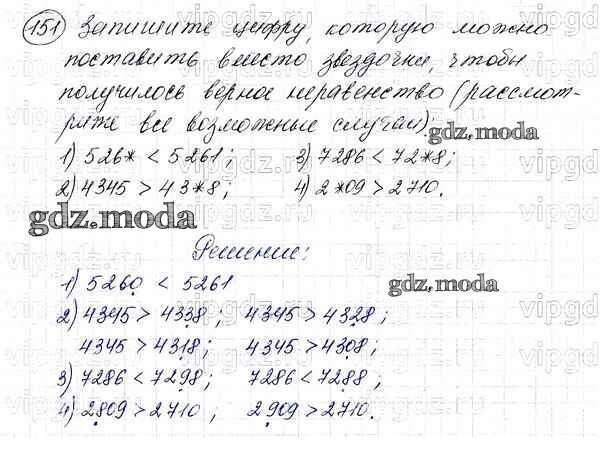 151 Запишите цифру, которую можно
поставить вместо звездочки, чтобы
получилось верное неравенство (рассмот-
рите все возможные случаи):
gdz.moda
1) 526* < 5261; 3) 7286 < 72*8;
2) 4345 > 43*8; 4) 2*09 > 2710.
gdz.moda
Решение:
1) 5260 < 5261
gdz.moda
2) 4345 > 4338; 4345 > 4328;
4345 > 4318; 4345 > 4308;
3) 7286 < 7298; 7286 < 7288;
4) 2809 > 2710, 2909 > 2710.